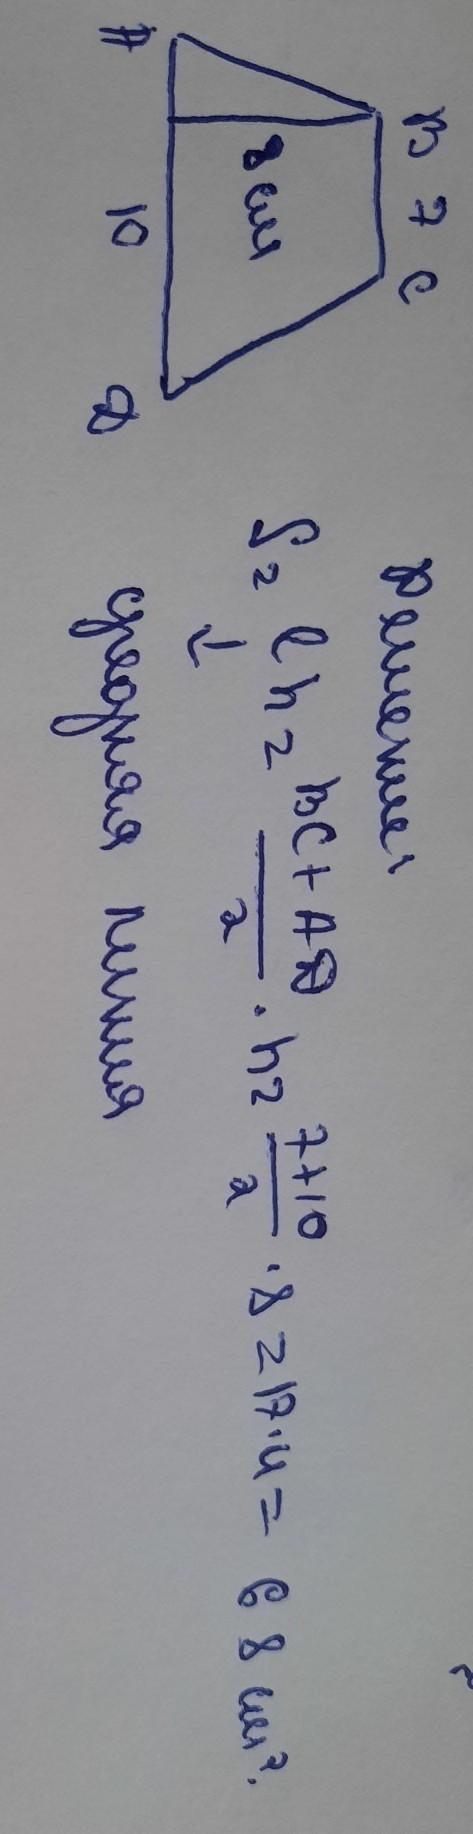 B 7 C
8 см
A 10 D
Решение:
S = lh = BC + AD / 2 · h = 7+10 / 2 · 8 = 17·4 = 68 см².
↓
средняя линия